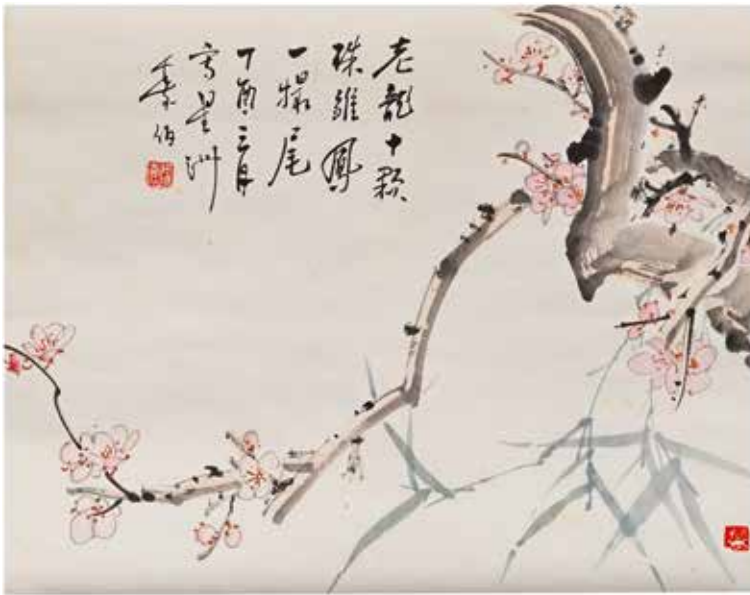 老龍十顆
珠雛鳳
一撮尾
丁酉三月
寫星洲
伯